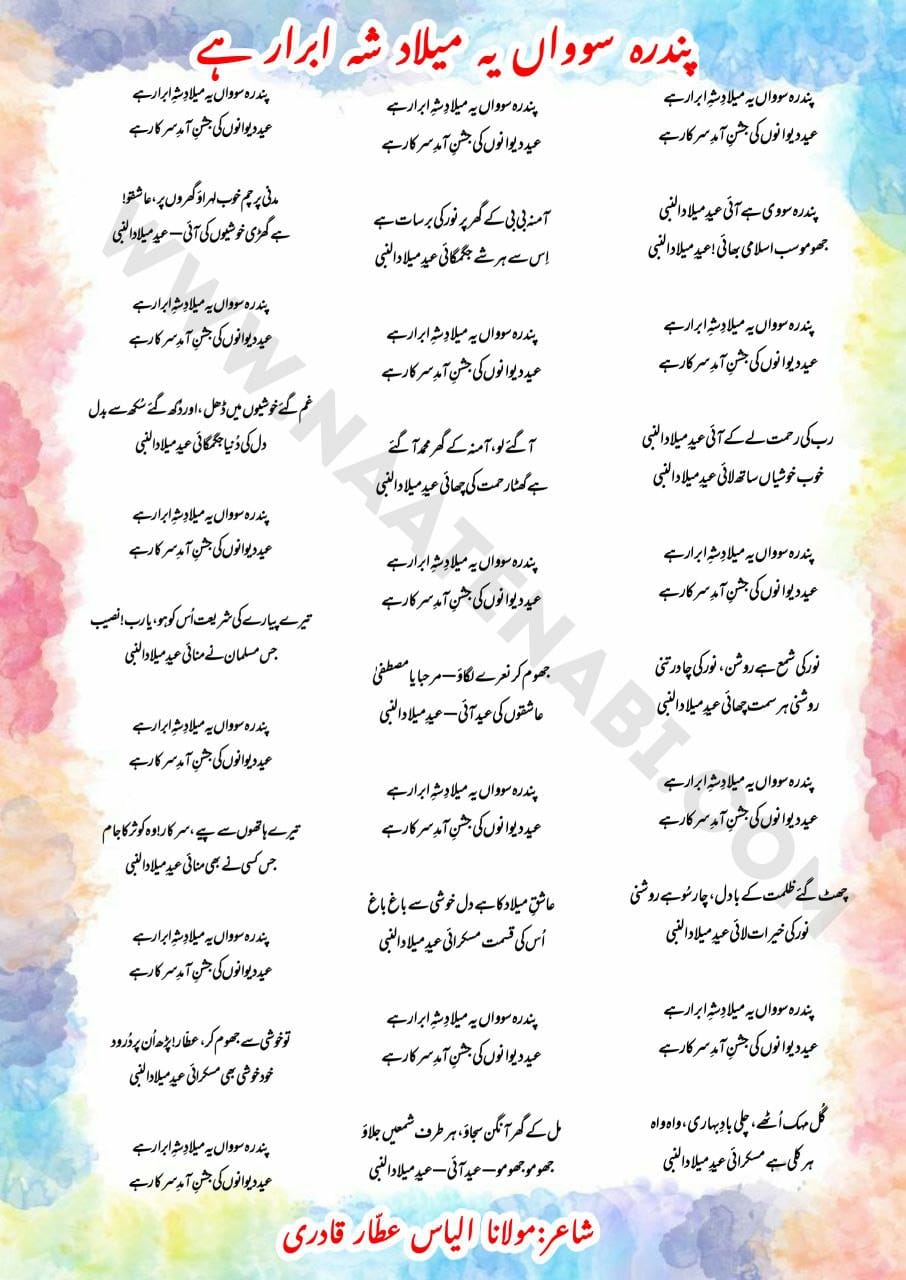 پندرہ سوواں یہ میلاد شہ ابرار ہے
پندرہ سوواں یہ میلادِ شہِ ابرار ہے
عید دیوانوں کی جشنِ آمدِ سرکار ہے
پندرہ سووی ہے آئی عید میلاد النبی
جھومو سب اسلامی بھائی! عید میلاد النبی
پندرہ سوواں یہ میلادِ شہِ ابرار ہے
عید دیوانوں کی جشنِ آمدِ سرکار ہے
رب کی رحمت لے کے آئی عیدِ میلاد النبی
خوب خوشیاں ساتھ لائی عیدِ میلاد النبی
پندرہ سوواں یہ میلادِ شہِ ابرار ہے
عید دیوانوں کی جشنِ آمدِ سرکار ہے
نور کی شمع ہے روشن، نور کی چادر تنی
روشنی ہر سمت چھائی عیدِ میلاد النبی
پندرہ سوواں یہ میلادِ شہِ ابرار ہے
عید دیوانوں کی جشنِ آمدِ سرکار ہے
چھٹ گئے ظلمت کے بادل، چار سُو ہے روشنی
نور کی خیرات لائی عیدِ میلاد النبی
پندرہ سوواں یہ میلادِ شہِ ابرار ہے
عید دیوانوں کی جشنِ آمدِ سرکار ہے
گُل مہک اُٹھے، چلی بادِ بہاری، واہ واہ
ہر کلی ہے مسکرائی عیدِ میلاد النبی
پندرہ سوواں یہ میلادِ شہِ ابرار ہے
عید دیوانوں کی جشنِ آمدِ سرکار ہے
آمنہ بی بی کے گھر پر نور کی برسات ہے
اِس سے ہر شے جگمگائی عیدِ میلاد النبی
پندرہ سوواں یہ میلادِ شہِ ابرار ہے
عید دیوانوں کی جشنِ آمدِ سرکار ہے
آ گئے لو، آمنہ کے گھر محمد آ گئے
ہے گھٹا رحمت کی چھائی عیدِ میلاد النبی
پندرہ سوواں یہ میلادِ شہِ ابرار ہے
عید دیوانوں کی جشنِ آمدِ سرکار ہے
جھوم کر نعرے لگاؤ — مرحبا یا مصطفیٰ
عاشقوں کی عید آئی — عیدِ میلاد النبی
پندرہ سوواں یہ میلادِ شہِ ابرار ہے
عید دیوانوں کی جشنِ آمدِ سرکار ہے
عاشقِ میلاد کا ہے دل خوشی سے باغ باغ
اُس کی قسمت مسکرائی عیدِ میلاد النبی
پندرہ سوواں یہ میلادِ شہِ ابرار ہے
عید دیوانوں کی جشنِ آمدِ سرکار ہے
مل کے گھر آنگن سجاؤ، ہر طرف شمعیں جلاؤ
جھومو جھومو — عید آئی — عیدِ میلاد النبی
پندرہ سوواں یہ میلادِ شہِ ابرار ہے
عید دیوانوں کی جشنِ آمدِ سرکار ہے
مدنی پرچم خوب لہراؤ گھروں پر، عاشقو!
ہے گھڑی خوشیوں کی آئی — عیدِ میلاد النبی
پندرہ سوواں یہ میلادِ شہِ ابرار ہے
عید دیوانوں کی جشنِ آمدِ سرکار ہے
غم گئے خوشیوں میں ڈھل، اور دُکھ گئے سُکھ سے بدل
دل کی دُنیا جگمگائی عیدِ میلاد النبی
پندرہ سوواں یہ میلادِ شہِ ابرار ہے
عید دیوانوں کی جشنِ آمدِ سرکار ہے
تیرے پیارے کی شریعت اُس کو ہو، یارب! نصیب
جس مسلمان نے منائی عیدِ میلاد النبی
پندرہ سوواں یہ میلادِ شہِ ابرار ہے
عید دیوانوں کی جشنِ آمدِ سرکار ہے
تیرے ہاتھوں سے پیے، سرکار! وہ کوثر کا جام
جس کسی نے بھی منائی عیدِ میلاد النبی
پندرہ سوواں یہ میلادِ شہِ ابرار ہے
عید دیوانوں کی جشنِ آمدِ سرکار ہے
تو خوشی سے جھوم کر، عطّار! پڑھ اُن پر دُرود
خود خوشی بھی مسکرائی عیدِ میلاد النبی
پندرہ سوواں یہ میلادِ شہِ ابرار ہے
عید دیوانوں کی جشنِ آمدِ سرکار ہے
شاعر:مولانا الیاس عطّار قادری
WWW.NAATENABI.COM